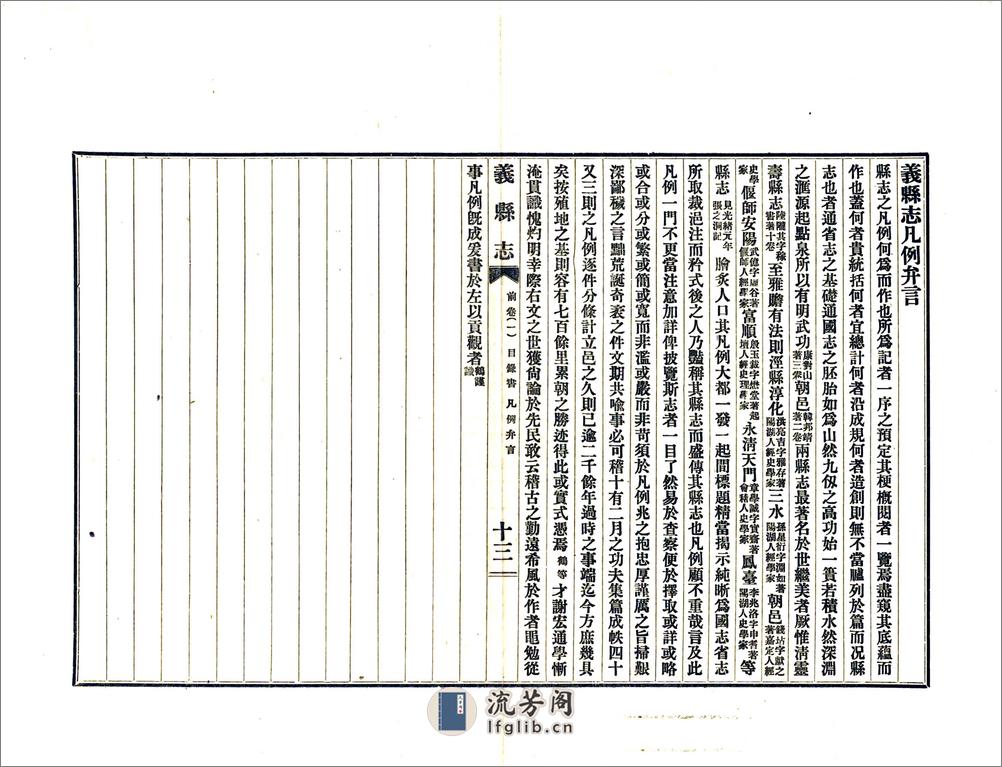 義縣志凡例弁言
縣志之凡例何為而作也所為記者一序之預定其梗概閱者一覽焉盡窺其底蘊而
作也蓋何者貴統括何者宜總計何者沿成規何者造創則無不當臚列於篇而况縣
志也者通省志之基礎通國志之胚胎如為山然九仭之高功始一簣若積水然深淵
之滙源起點泉所以有明武功康對山著三卷朝邑韓邦靖著二卷兩縣志最著名於世繼美者厥惟淸靈
壽縣志陸隴其字稼書著十卷至雅贍有法則涇縣淳化洪亮吉字雅存著陽湖人經史學家三水孫星衍字淵如著陽湖人經學家朝邑錢坫字獻之著嘉定人經
史學家偃師安陽武億字虛谷著偃師人經學家富順段玉裁字懋堂著金壇人經史理學家永淸天門章學誠字實齋著會稽人史學家鳳臺李兆洛字申耆著陽湖人史學家等
縣志見光緒元年張之洞記膾炙人口其凡例大都一發一起間標題精當揭示純晰為國志省志
所取裁邑注而矜式後之人乃豔稱其縣志而盛傳其縣志也凡例顧不重哉言及此
凡例一門不更當注意加詳俾披覽斯志者一目了然易於查察便於擇取或詳或略
或合或分或繁或簡或寬而非濫或嚴而非苛須於凡例兆之抱忠厚謹厲之旨掃艱
深鄙穢之言黜荒誕奇衺之件文期共喻事必可稽十有二月之功夫集篇成帙四十
又三則之凡例逐件分條計立邑之久則已逾二千餘年過時之事端迄今方庶幾具
矣按殖地之基則容有七百餘里累朝之勝迹得此或實式憑焉鶴等才謝宏通學慚
淹貫識愧灼明幸際右文之世獲尙論於先民敢云稽古之勤遠希風於作者黽勉從
事凡例旣成爰書於左以貢觀者鶴謹識
義縣志
前卷(一) 目錄書 凡例弁言
十三
流芳阁
lfglib.cn